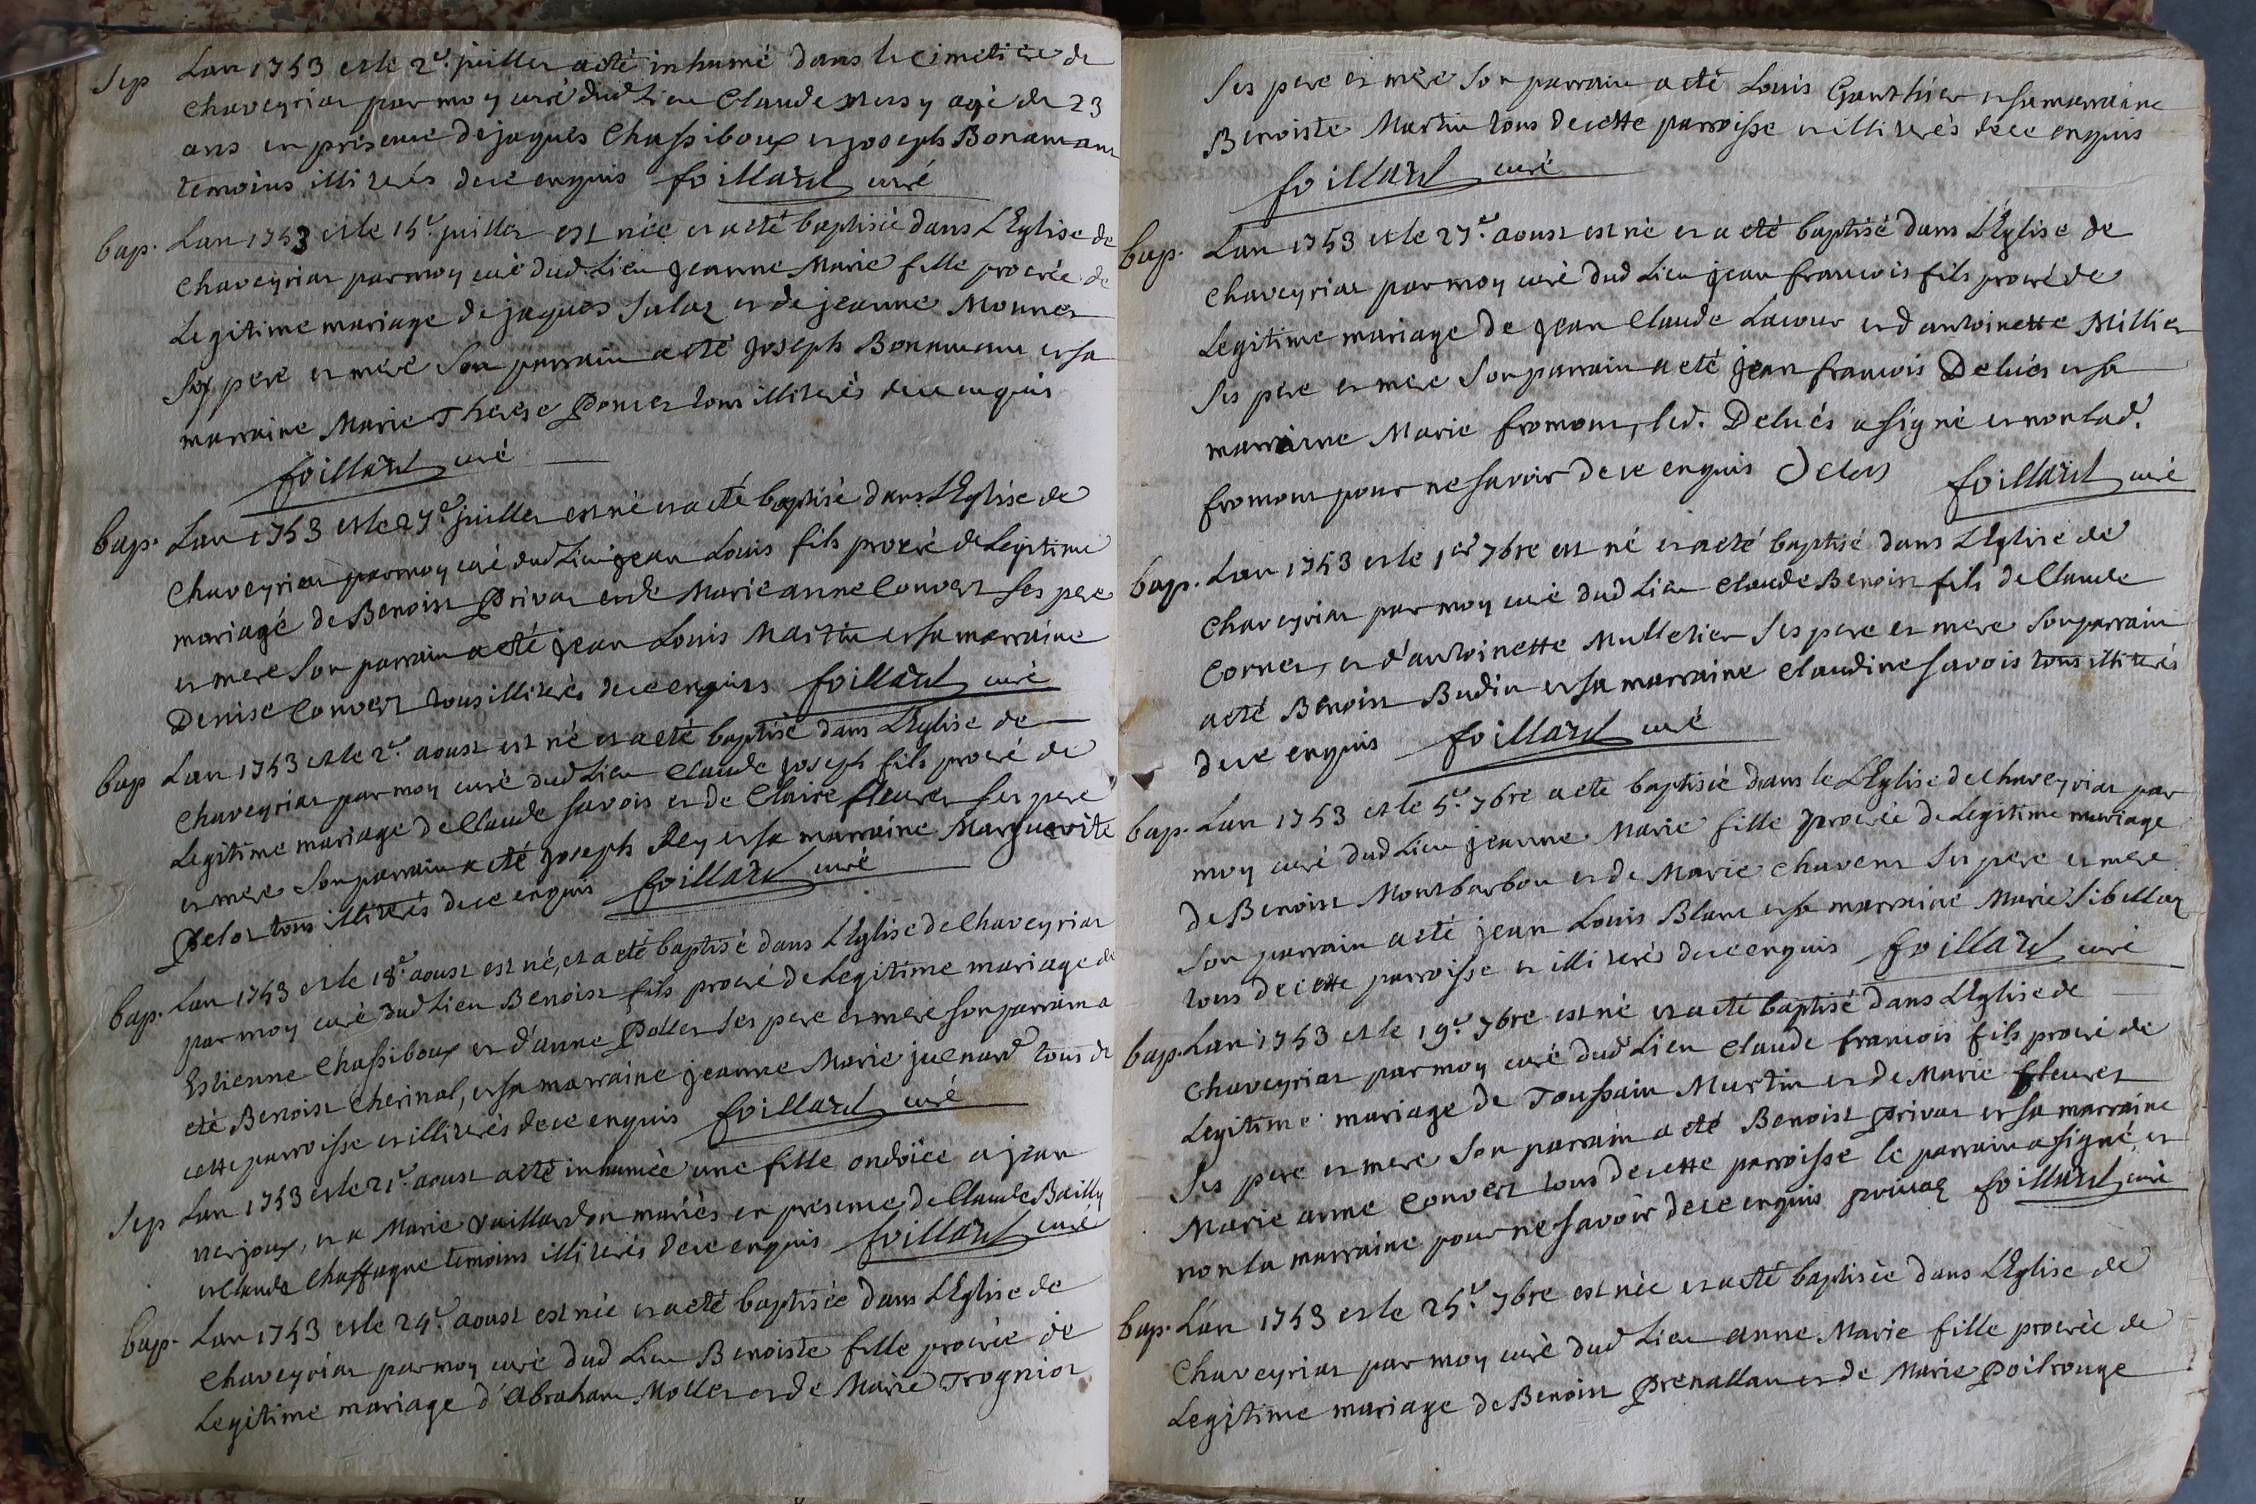 Sep Lan 1753 et le 2e. juillet a eté inhumé dans le cimetiere de
Chaveyriat par moy curé dud Lieu Claude Mersy agé de 23
ans en presence de jaques Chassiboux et joseph Bonamant
temoins illiterés de ce enquis foillard curé
bap. Lan 1753 et le 15e. juillet est née et a eté baptisée dans LEglise de
Chaveyriat par moy curé dud Lieu jeanne Marie fille procréé de
Legitime mariage de jaques Sulaz et de jeanne Monnet
ses pere et mere son parrain a eté joseph Bonamant et sa
marraine Marie Therese Poncet tous illiterés de ce enquis
foillard curé
bap. Lan 1753 et le 27e. juillet est né et a eté baptisé dans LEglise de
Chaveyriat par moy curé dud Lieu jean Louis fils procréé de Legitime
mariage de Benoist Privat et de Marie anne Convert ses pere
et mere son parrain a eté jean Louis Martin et sa marraine
Denise Convert tous illiterés de ce enquis foillard curé
bap Lan 1753 et le 2e. aoust est né et a eté baptisé dans LEglise de
Chaveyriat par moy curé dud Lieu Claude joseph fils procréé de
Legitime mariage de Claude Savois et de Claire fleuret ses pere
et mere son parrain a eté joseph Rey et sa marraine Marguerite
Pelot tous illiterés de ce enquis foillard curé
bap. Lan 1753 et le 18e. aoust est né, et a eté baptisé dans LEglise de Chaveyriat
par moy curé dud Lieu Benoist fils procréé de Legitime mariage de
Estienne Chassiboux et d'anne Pollet ses pere et mere son parrain a
eté Benoist Cherinal, et sa marraine jeanne Marie juenard tous de
cette parroisse et illiterés de ce enquis foillard curé
Sep Lan 1753 et le 21e. aoust a eté inhumée une fille ondoiée a jean
verjoux, et a Marie Vuillardon mariés en presence de Claude Bailly
et Claude Chaffagne temoins illiterés de ce enquis foillard curé
bap. Lan 1753 et le 24e. aoust est née et a eté baptisée dans LEglise de
Chaveyriat par moy curé dud Lieu Benoiste fille procréé de
Legitime mariage d'Abraham Mollet et de Marie Trogniot
Ses pere et mere son parrain a eté Louis Gauthier et sa marraine
Benoiste Martin tous de cette parroisse et illiterés de ce enquis
foillard curé
bap. Lan 1753 et le 27e. aoust est né et a eté baptisé dans LEglise de
Chaveyriat par moy curé dud Lieu jean francois fils procréé de
Legitime mariage de jean Claude Lacour et d'antoinette Millier
ses pere et mere son parrain a eté jean francois Delués et sa
marraine Marie fromont, led. Delués a signé et non lad.
fromont pour ne savoir de ce enquis Delués foillard curé
bap. Lan 1753 et le 1er 7bre est né et a eté baptisé dans LEglise de
Chaveyriat par moy curé dud Lieu Claude Benoist fils de Claude
Cornet, et d'antoinette Mulletier ses pere et mere son parrain
a eté Benoist Budin et sa marraine Claudine Savois tous illiterés
de ce enquis foillard curé
bap. Lan 1753 et le 5e. 7bre a eté baptisée dans le LEglise de Chaveyriat par
moy curé dud Lieu jeanne Marie fille procréé de Legitime mariage
de Benoist Montbarbon et de Marie Chavent ses pere et mere
son parrain a eté jean Louis Blanc et sa marraine Marie Sibellaz
tous de cette parroisse et illiterés de ce enquis foillard curé
bap. Lan 1753 et le 19e. 7bre est né et a eté baptisé dans LEglise de
Chaveyriat par moy curé dud Lieu Claude francois fils procréé de
Legitime mariage de Toussain Murtin et de Marie fleuret
ses pere et mere son parrain a eté Benoist Privat et sa marraine
Marie anne Convert tous de cette parroisse le parrain a signé et
non la marraine pour ne savoir de ce enquis privat foillard curé
bap. Lan 1753 et le 25e. 7bre est née et a eté baptisée dans LEglise de
Chaveyriat par moy curé dud Lieu anne Marie fille procréé de
Legitime mariage de Benoist Prenallan et de Marie Poilrouge